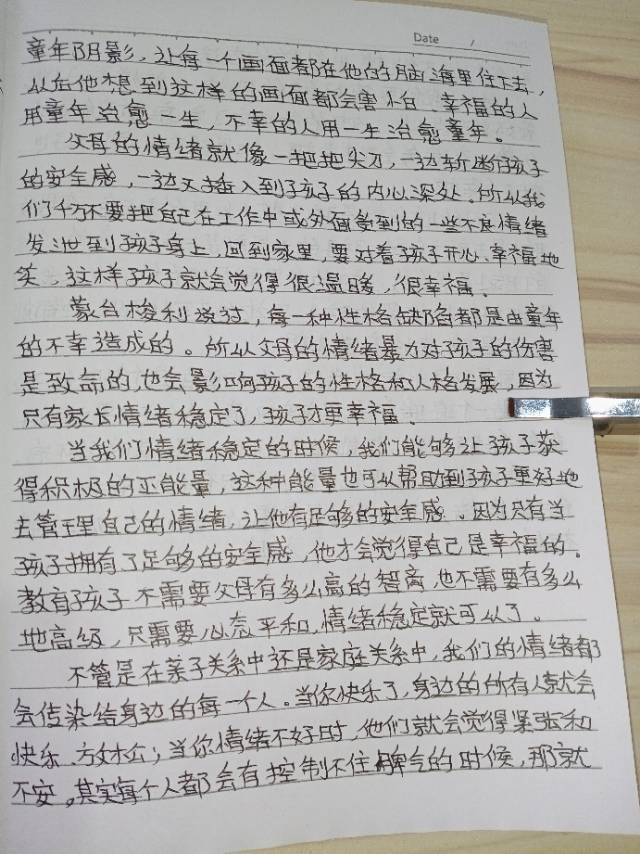 Date /
童年阴影，让每一个画面都在他的脑海里住下去，
从后他想到这样的画面都会害怕。幸福的人
用童年治愈一生，不幸的人用一生治愈童年。
父母的情绪就像一把把尖刀，一边斩断孩子
的安全感，一边又插入到孩子的内心深处。所以我
们千万不要把自己在工作中或外面受到的一些不良情绪
发泄到孩子身上，回到家里，要对着孩子开心、幸福地
笑，这样孩子就会觉得很温暖，很幸福。
蒙台梭利说过，每一种性格缺陷都是由童年
的不幸造成的。所以父母的情绪暴力对孩子的伤害
是致命的，也会影响孩子的性格和人格发展，因为
只有家长情绪稳定了，孩子才更幸福。
当我们情绪稳定的时候，我们能够让孩子获
得积极的正能量，这种能量也可以帮助到孩子更好地
去管理自己的情绪，让他有足够的安全感。因为只有当
孩子拥有了足够的安全感，他才会觉得自己是幸福的。
教育孩子不需要父母有多么高的智商，也不需要有多么
地高级，只需要心态平和，情绪稳定就可以了。
不管是在亲子关系中还是家庭关系中，我们的情绪都
会传染给身边的每一个人。当你快乐了，身边的所有人就会
快乐、放松；当你情绪不好时，他们就会觉得紧张和
不安。其实每个人都会有控制不住脾气的时候，那就